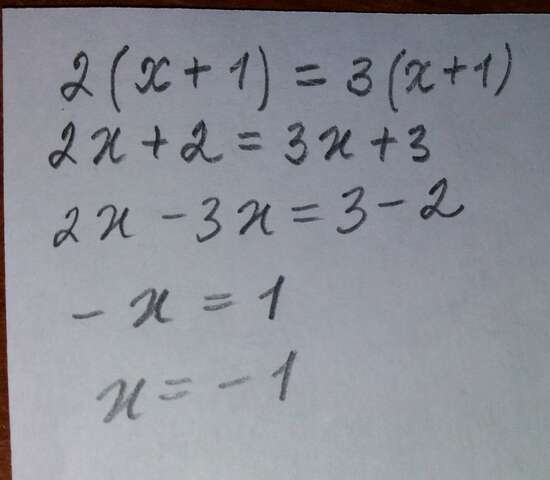 2(x+1) = 3(x+1)
2x + 2 = 3x + 3
2x - 3x = 3 - 2
- x = 1
x = - 1